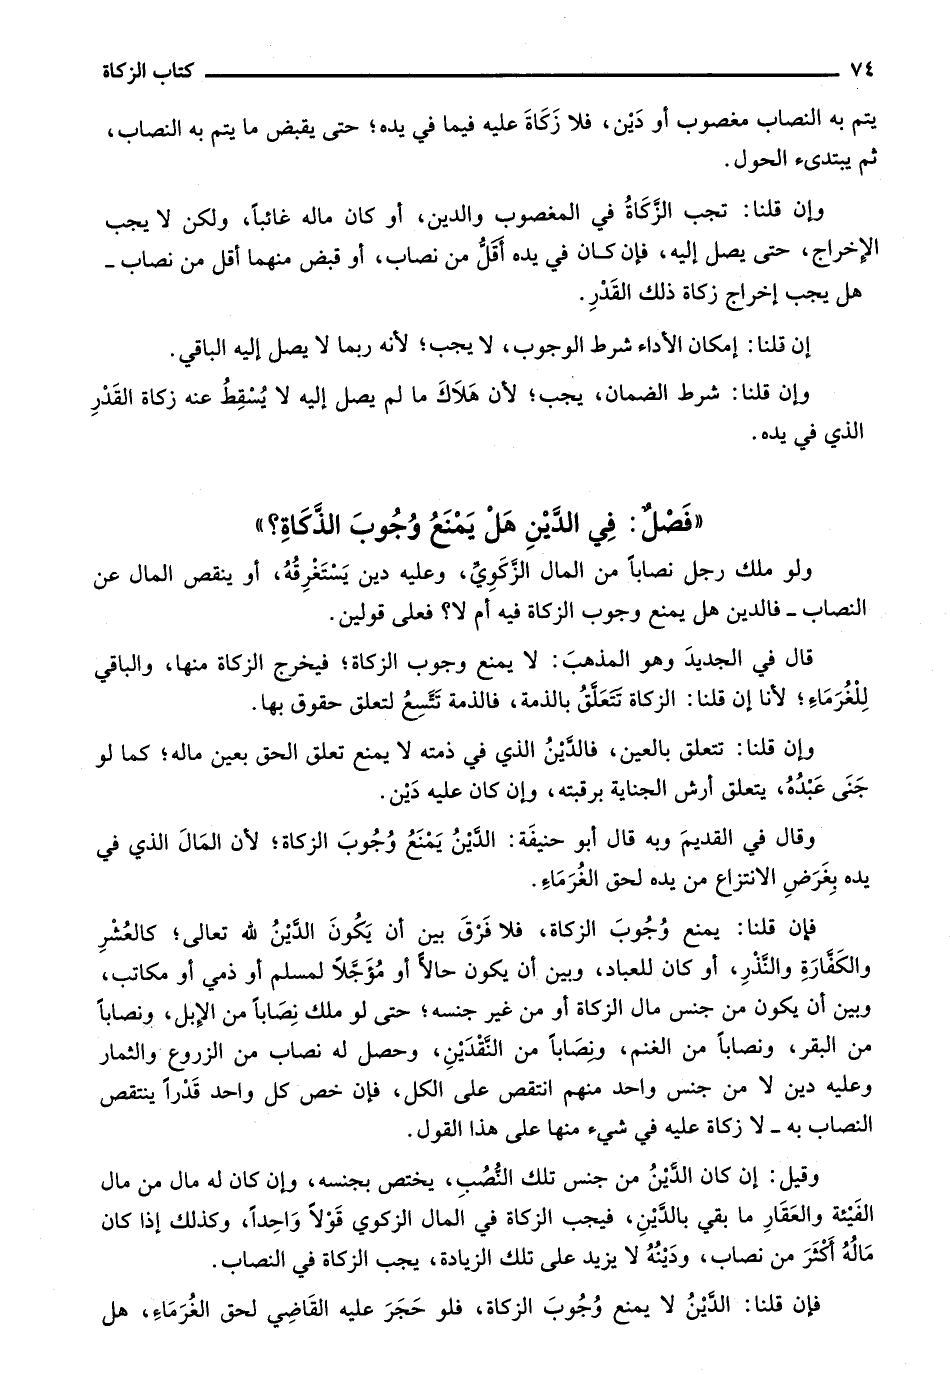 ٧٤ كتاب الزكاة
يتم به النصاب مغصوب أو دَيْن، فلا زَكَاةَ عليه فيما في يده؛ حتى يقبض ما يتم به النصاب،
ثم يبتدىء الحول.
وإن قلنا: تجب الزَّكَاةُ في المغصوب والدين، أو كان ماله غائباً، ولكن لا يجب
الإخراج، حتى يصل إليه، فإن كان في يده أَقَلُّ من نصاب، أو قبض منهما أقل من نصاب ـ
هل يجب إخراج زكاة ذلك القَدْرِ.
إن قلنا: إمكان الأداء شرط الوجوب، لا يجب؛ لأنه ربما لا يصل إليه الباقي.
وإن قلنا: شرط الضمان، يجب؛ لأن هَلَاكَ ما لم يصل إليه لا يُسْقِطُ عنه زكاة القَدْرِ
الذي في يده.
«فَصْلٌ: فِي الدَّيْنِ هَلْ يَمْنَعُ وُجُوبَ الذَّكَاةِ؟»
ولو ملك رجل نصاباً من المال الزَّكَوِيِّ، وعليه دين يَسْتَغْرِقُهُ، أو ينقص المال عن
النصاب ـ فالدين هل يمنع وجوب الزكاة فيه أم لا؟ فعلى قولين.
قال في الجديدَ وهو المذهبَ: لا يمنع وجوب الزكاة؛ فيخرج الزكاة منها، والباقي
لِلْغُرَمَاءِ؛ لأنا إن قلنا: الزكاة تَتَعَلَّقُ بالذمة، فالذمة تَتَّسِعُ لتعلق حقوق بها.
وإن قلنا: تتعلق بالعين، فالدَّيْنُ الذي في ذمته لا يمنع تعلق الحق بعين ماله؛ كما لو
جَنَى عَبْدُهُ، يتعلق أرش الجناية برقبته، وإن كان عليه دَيْن.
وقال في القديمَ وبه قال أبو حنيفَة: الدَّيْنُ يَمْنَعُ وُجُوبَ الزكاة؛ لأن المَالَ الذي في
يده بِغَرَضِ الانتزاع من يده لحق الغُرَمَاءِ.
فإن قلنا: يمنع وُجُوبَ الزكاة، فلا فَرْقَ بين أن يَكُونَ الدَّيْنُ لله تعالى؛ كالعُشْرِ
والكَفَّارَةِ والنَّذْرِ، أو كان للعباد، وبين أن يكون حالاً أو مُؤَجَّلاً لمسلم أو ذمي أو مكاتب،
وبين أن يكون من جنس مال الزكاة أو من غير جنسه؛ حتى لو ملك نِصَاباً من الإبل، ونصاباً
من البقر، ونصاباً من الغنم، ونِصَاباً من النَّقْدَيْنِ، وحصل له نصاب من الزروع والثمار
وعليه دين لا من جنس واحد منهم انتقص على الكل، فإن خص كل واحد قَدْراً ينتقص
النصاب به ـ لا زكاة عليه في شيء منها على هذا القول.
وقيل: إن كان الدَّيْنُ من جنس تلك النُّصُبِ، يختص بجنسه، وإن كان له مال من مال
الفَيْئَة والعَقَارِ ما بقي بالدَّيْنِ، فيجب الزكاة في المال الزكوي قَوْلاً وَاحِداً، وكذلك إذا كان
مَالُهُ أَكْثَرَ من نصاب، ودَيْنُهُ لا يزيد على تلك الزيادة، يجب الزكاة في النصاب.
فإن قلنا: الدَّيْنُ لا يمنع وُجُوبَ الزكاة، فلو حَجَرَ عليه القَاضِي لحق الغُرَمَاءِ، هل